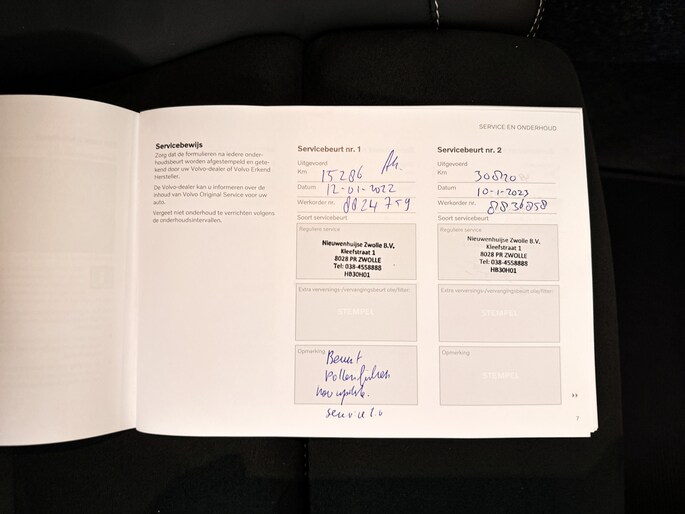 SERVICE EN ONDERHOUD
Servicebewijs
Zorg dat de formulieren na iedere onder-
houdsbeurt worden afgestempeld en gete-
kend door uw Volvo-dealer of Volvo Erkend
Hersteller.
De Volvo-dealer kan u informeren over de
inhoud van Volvo Original Service voor uw
auto.
Vergeet niet onderhoud te verrichten volgens
de onderhoudsintervallen.
Servicebeurt nr. 1
Uitgevoerd
Km 15286
Datum 12-01-2022
Werkorder nr. 8824759
Soort servicebeurt
Reguliere service
Nieuwenhuijse Zwolle B.V.
Kleefstraat 1
8028 PR ZWOLLE
Tel: 038-4558888
HB30H01
Extra verversings-/vervangingsbeurt olie/filter:
STEMPEL
Opmerking
Beurt
service 2.0
Servicebeurt nr. 2
Uitgevoerd
Km 30820
Datum 10-1-2023
Werkorder nr. 8836858
Soort servicebeurt
Reguliere service
Nieuwenhuijse Zwolle B.V.
Kleefstraat 1
8028 PR ZWOLLE
Tel: 038-4558888
HB30H01
Extra verversings-/vervangingsbeurt olie/filter:
STEMPEL
Opmerking
STEMPEL
7